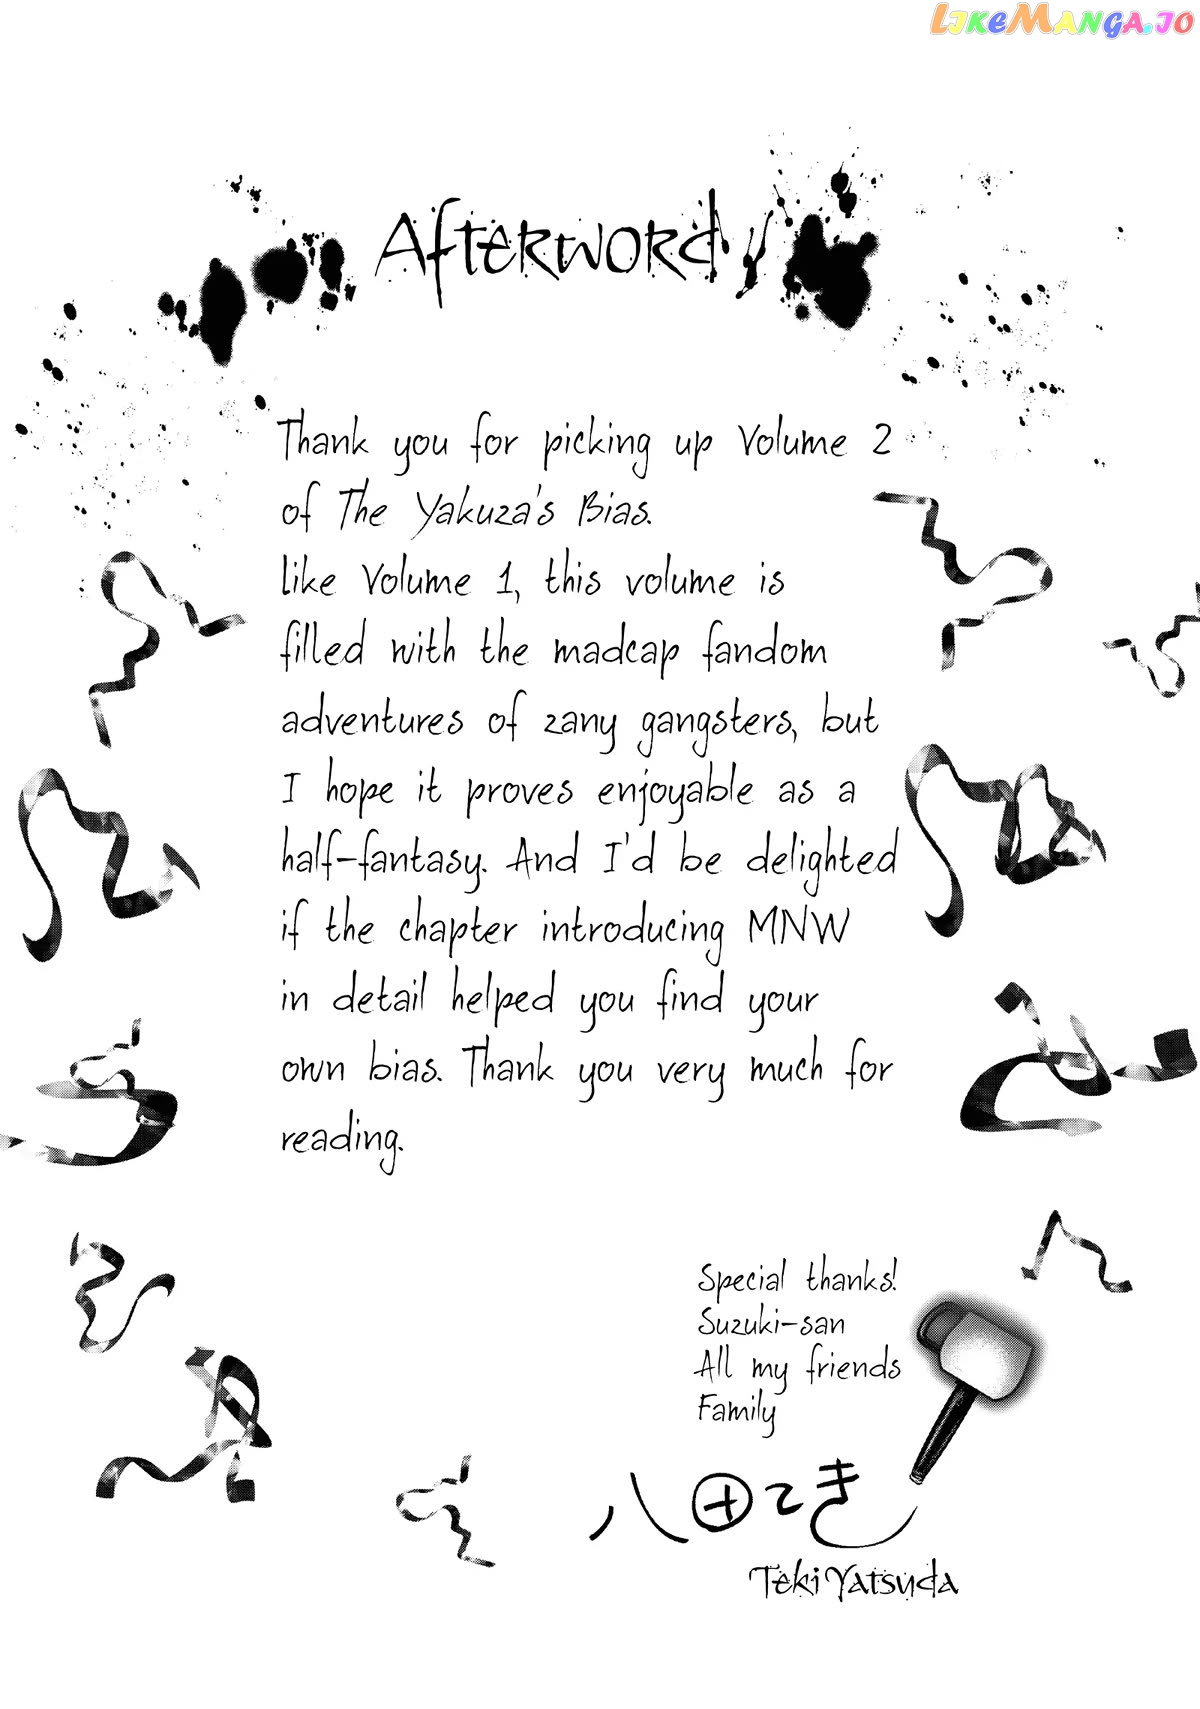 LIKEMANGA.IO
Afterword
Thank you for picking up Volume 2
of The Yakuza's Bias.
Like Volume 1, this volume is
filled with the madcap fandom
adventures of zany gangsters, but
I hope it proves enjoyable as a
half-fantasy. And I'd be delighted
if the chapter introducing MNW
in detail helped you find your
own bias. Thank you very much for
reading.
Special thanks!
Suzuki-san
All my friends
Family
八田てき
Teki Yatsuda